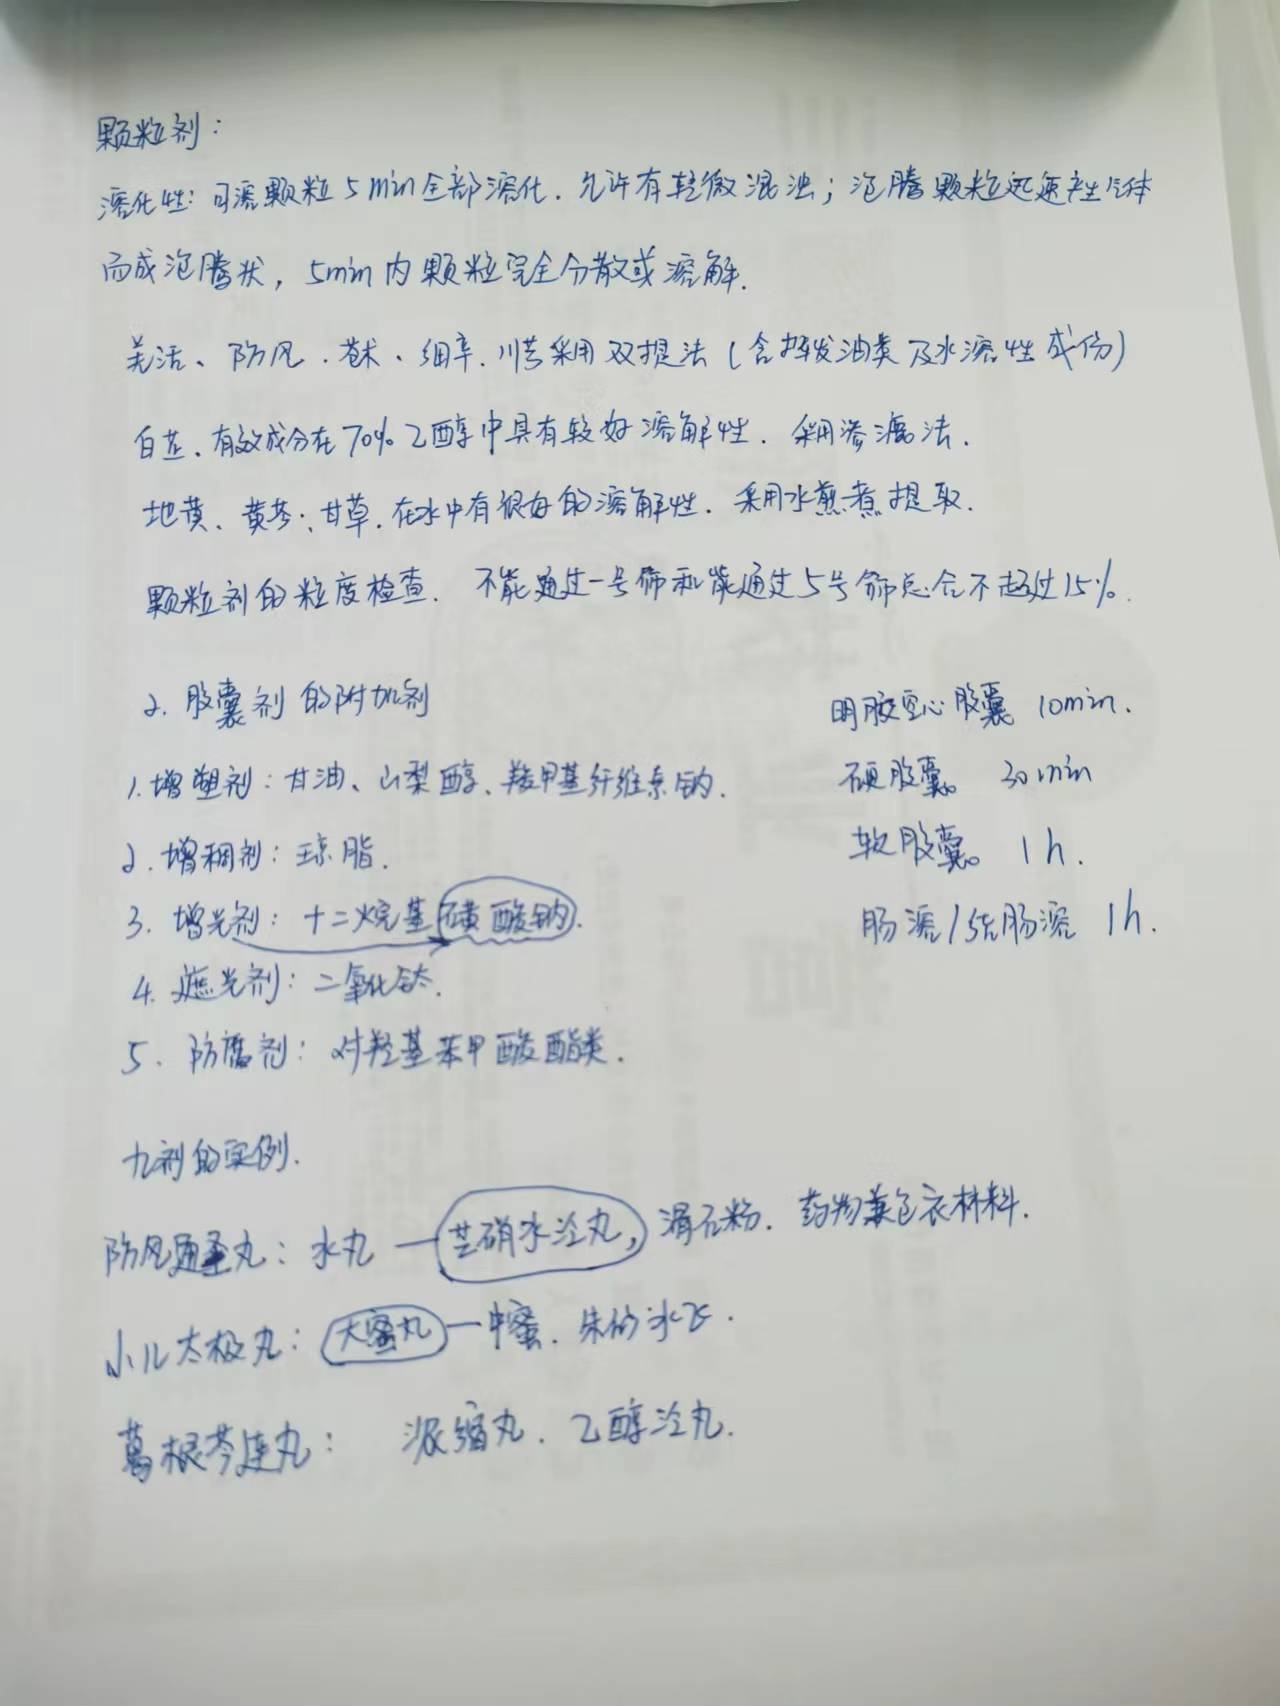 颗粒剂：
溶化性：可溶颗粒5min全部溶化．允许有轻微混浊；泡腾颗粒迅速产生气体
而成泡腾状，5min内颗粒完全分散或溶解．
羌活、防风．苍术、细辛．川芎采用双提法（含挥发油类及水溶性成份）
白芷、有效成分在70%乙醇中具有较好溶解性．采用渗漉法．
地黄、黄芩、甘草．在水中有很好的溶解性．采用水煎煮提取．
颗粒剂的粒度检查．不能通过一号筛和能通过5号筛总合不超过15%．
2．胶囊剂的附加剂
1．增塑剂：甘油、山梨醇、羧甲基纤维素钠．
2．增稠剂：琼脂．
3．增光剂：十二烷基磺酸钠．
4．遮光剂：二氧化钛．
5．防腐剂：对羟基苯甲酸酯类．
明胶空心胶囊 10min．
硬胶囊。 30min
软胶囊。 1h．
肠溶/结肠溶 1h．
丸剂的实例．
防风通圣丸：水丸—芒硝水泛丸，滑石粉．药物兼包衣材料．
小儿太极丸：大蜜丸—中蜜．朱砂水飞．
葛根芩连丸： 浓缩丸．乙醇泛丸．